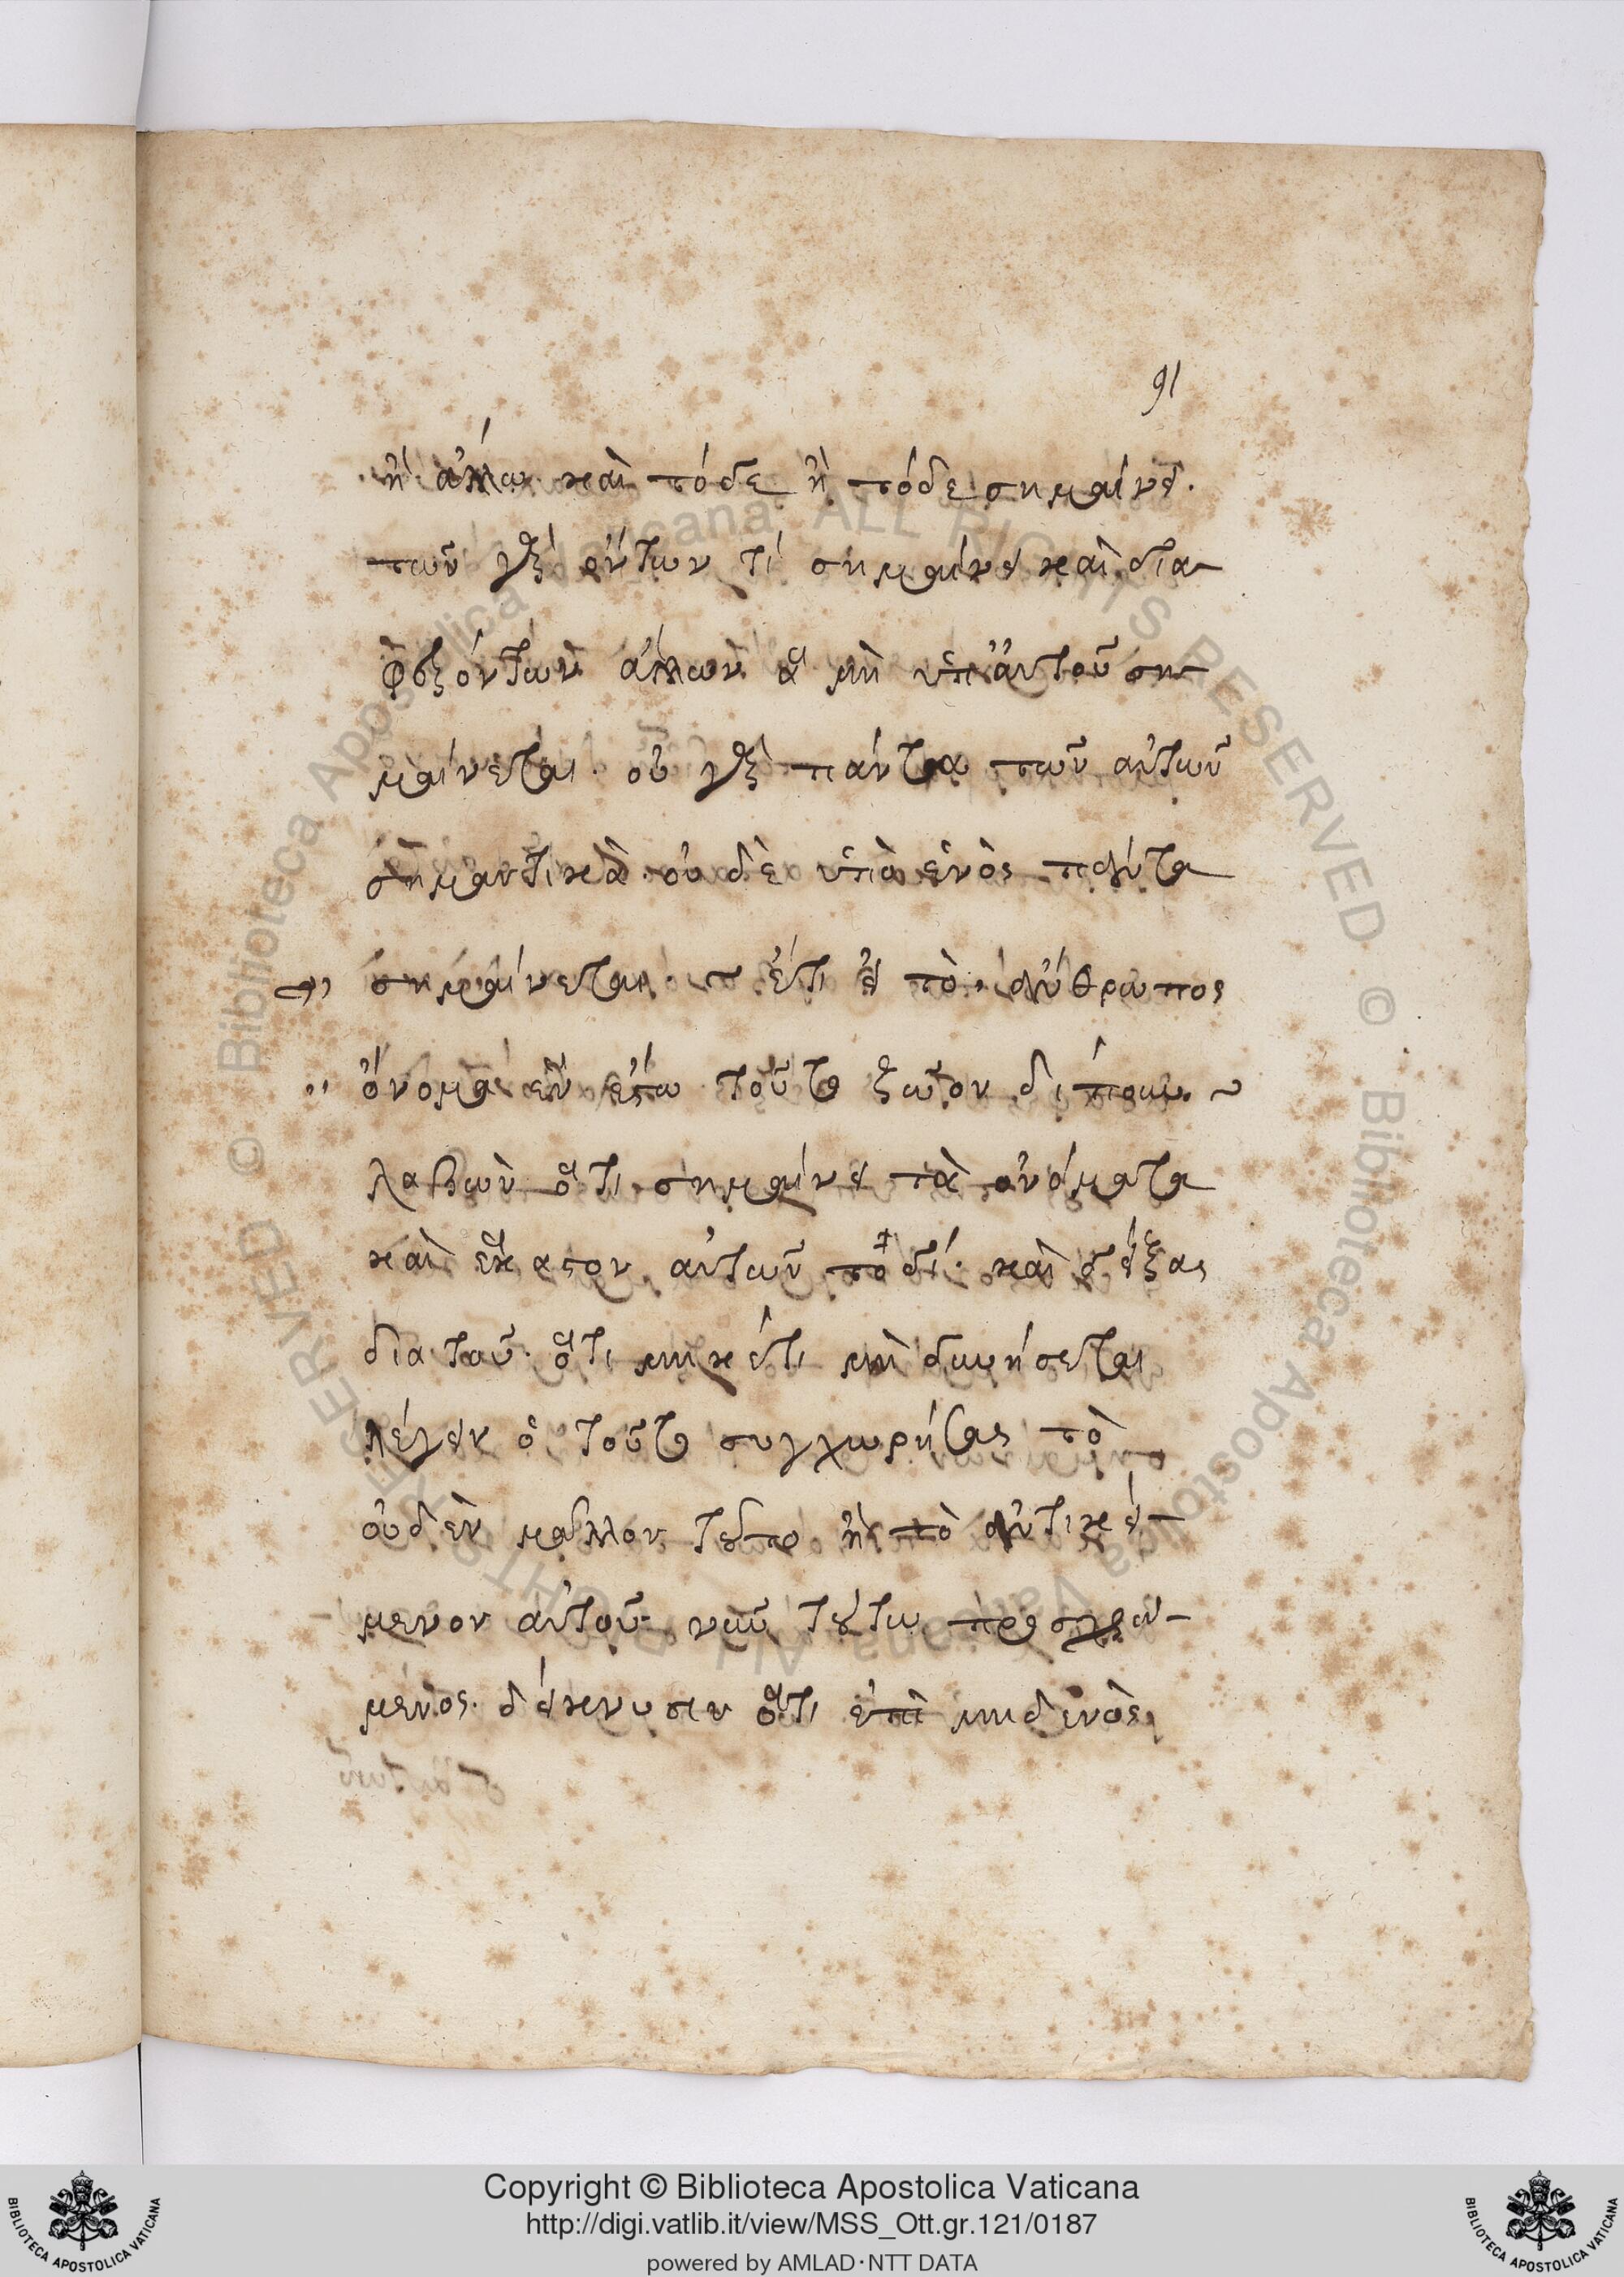 91
ἢ ἄλλῳ καὶ τόδε ἢ τόδε σημαίνει.
τῶν γὰρ ὄντων τί σημαίνει καὶ δια
φερόντων ἄλλων ἃ μὴ ὑπ' αὐτοῦ ση
μαίνεται. οὐ γὰρ πάντα τῶν αὐτῶν
σημαντικὰ. οὐδὲ ὑπὸ ἑνὸς πάντα
σημαίνεται. ἔτι εἰ τὸ ἄνθρωπος
ὄνομα ἓν ἔστω τοῦτο ζῶον δίπουν ~
λαβὼν ὅτι σημαίνει τὰ ὀνόματα
καὶ ἕκαστον αὐτῶν τοδί. καὶ δείξας
δια τοῦ ὅτι μηκέτι μὴ δυνήσεται
λέγειν ὁ τοῦτο συγχωρήσας τὸ
οὐδὲν μᾶλλον τοῦτο ἢ τὸ ἀντικεί-
μενον αὐτοῦ. νῦν τούτῳ προσχρώ-
μενος. δείκνυσιν ὅτι ἐπὶ μηδενὸς
Copyright © Biblioteca Apostolica Vaticana
http://digi.vatlib.it/view/MSS_Ott.gr.121/0187
powered by AMLAD·NTT DATA
BIBLIOTECA APOSTOLICA VATICANA
BIBLIOTECA APOSTOLICA VATICANA
© Biblioteca Apostolica Vaticana ALL RIGHTS RESERVED © Biblioteca Apostolica Vaticana ALL RIGHTS RESERVED